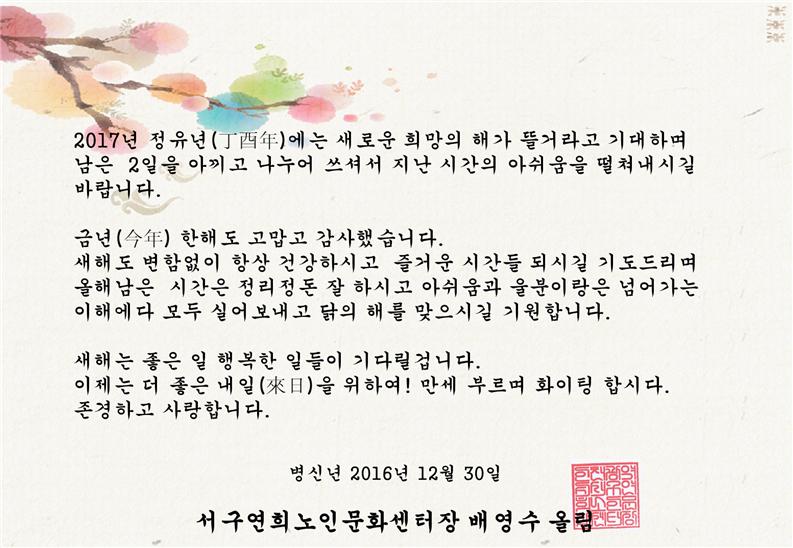 2017년 정유년(丁酉年)에는 새로운 희망의 해가 뜰거라고 기대하며
남은 2일을 아끼고 나누어 쓰셔서 지난 시간의 아쉬움을 떨쳐내시길
바랍니다.
금년(今年) 한해도 고맙고 감사했습니다.
새해도 변함없이 항상 건강하시고 즐거운 시간들 되시길 기도드리며
올해남은 시간은 정리정돈 잘 하시고 아쉬움과 울분이랑은 넘어가는
이해에다 모두 실어보내고 닭의 해를 맞으시길 기원합니다.
새해는 좋은 일 행복한 일들이 기다릴겁니다.
이제는 더 좋은 내일(來日)을 위하여! 만세 부르며 화이팅 합시다.
존경하고 사랑합니다.
병신년 2016년 12월 30일
서구연희노인문화센터장 배영수 올림